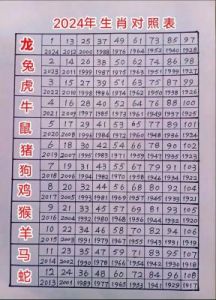 2024年生肖对照表
龙 1 13 25 37 49 61 73 85 97
2024 2012 2000 1988 1976 1964 1952 1940 1928
兔 2 14 26 38 50 62 74 86 98
2023 2011 1999 1987 1975 1963 1951 1939 1927
虎 3 15 27 39 51 63 75 87 99
2022 2010 1998 1986 1974 1962 1950 1938 1926
牛 4 16 28 40 52 64 76 88 100
2021 2009 1997 1985 1973 1961 1949 1937 1925
鼠 5 17 29 41 53 65 77 89 101
2020 2008 1996 1984 1972 1960 1948 1936 1924
猪 6 18 30 42 54 66 78 90 102
2019 2007 1995 1983 1971 1959 1947 1935 1923
狗 7 19 31 43 55 67 79 91 103
2018 2006 1994 1982 1970 1958 1946 1934 1922
鸡 8 20 32 44 56 68 80 92 104
2017 2005 1993 1981 1969 1957 1945 1933 1921
猴 9 21 33 45 57 69 81 93 105
2016 2004 1992 1980 1968 1956 1944 1932 1920
羊 10 22 34 46 58 70 82 94 106
2015 2003 1991 1979 1967 1955 1943 1931 1919
马 11 23 35 47 59 71 83 95 107
2014 2002 1990 1978 1966 1954 1942 1930 1918
蛇 12 24 36 48 60 72 84 96 108
2013 2001 1989 1977 1965 1953 1941 1929 1917